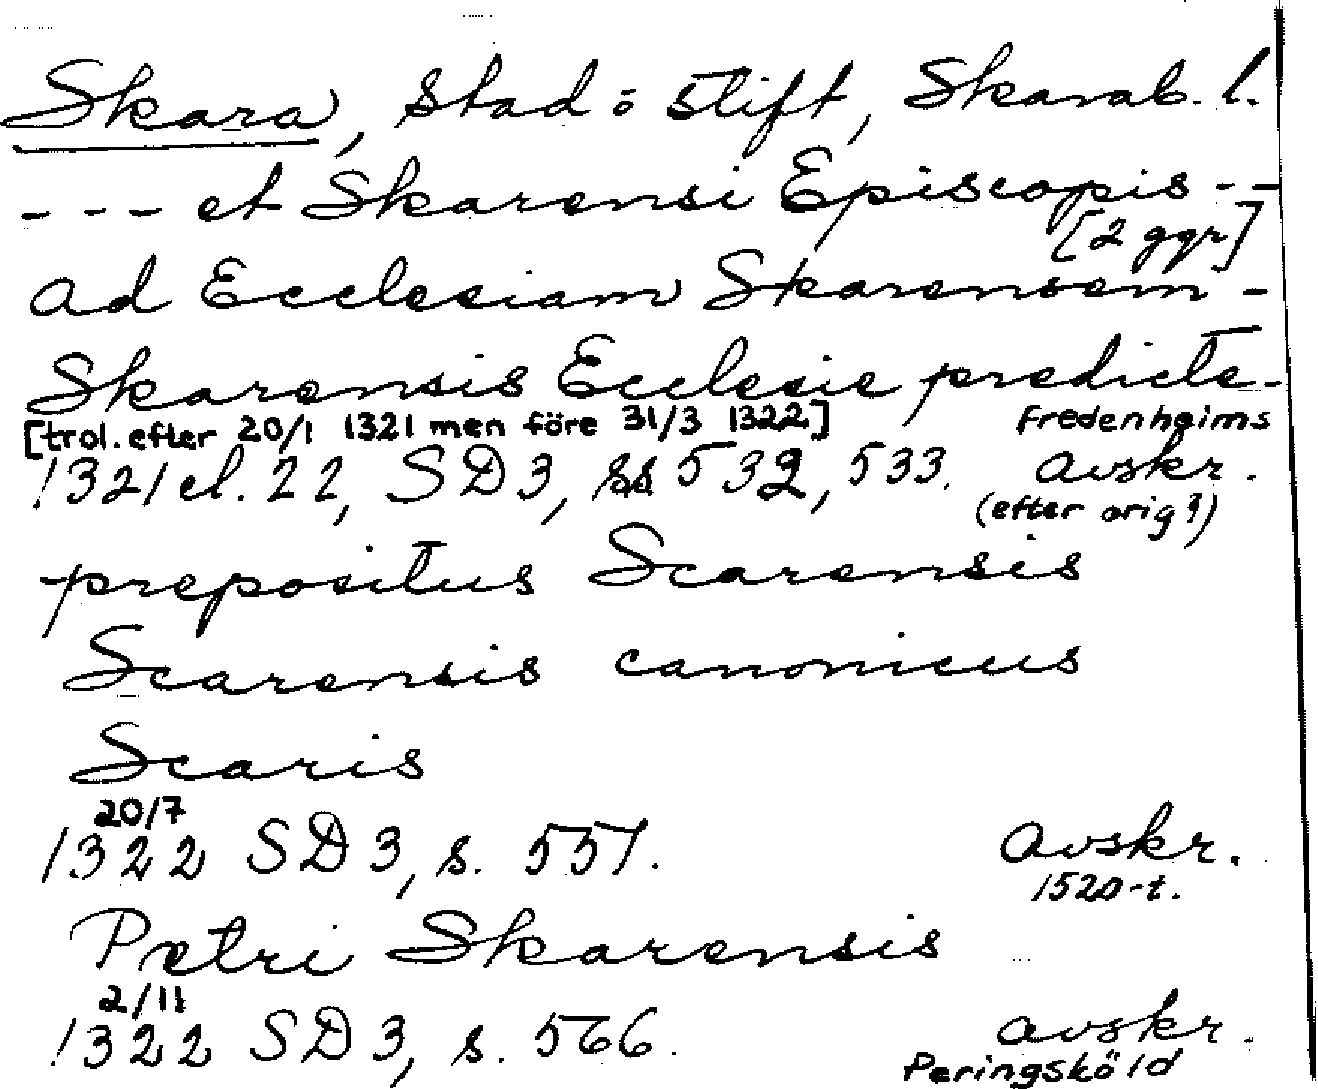 Skara, stad o stift, Skarab. l.
- - - et Skarensi Episcopis - -
[2 ggr]
ad Ecclesiam Skarensem -
Skarensis Ecclesie predicte -
[trol. efter 20/1 1321 men före 31/3 1322] Fredenheims
1321 el. 22, SD 3, ss 532, 533. avskr.
(efter orig?)
prepositus Scarensis
Scarensis canonicus
Scaris
20/7
1322 SD 3, s. 551. avskr.
1520-t.
Petri Skarensis
2/11
1322 SD 3, s. 566. avskr.
Peringsköld